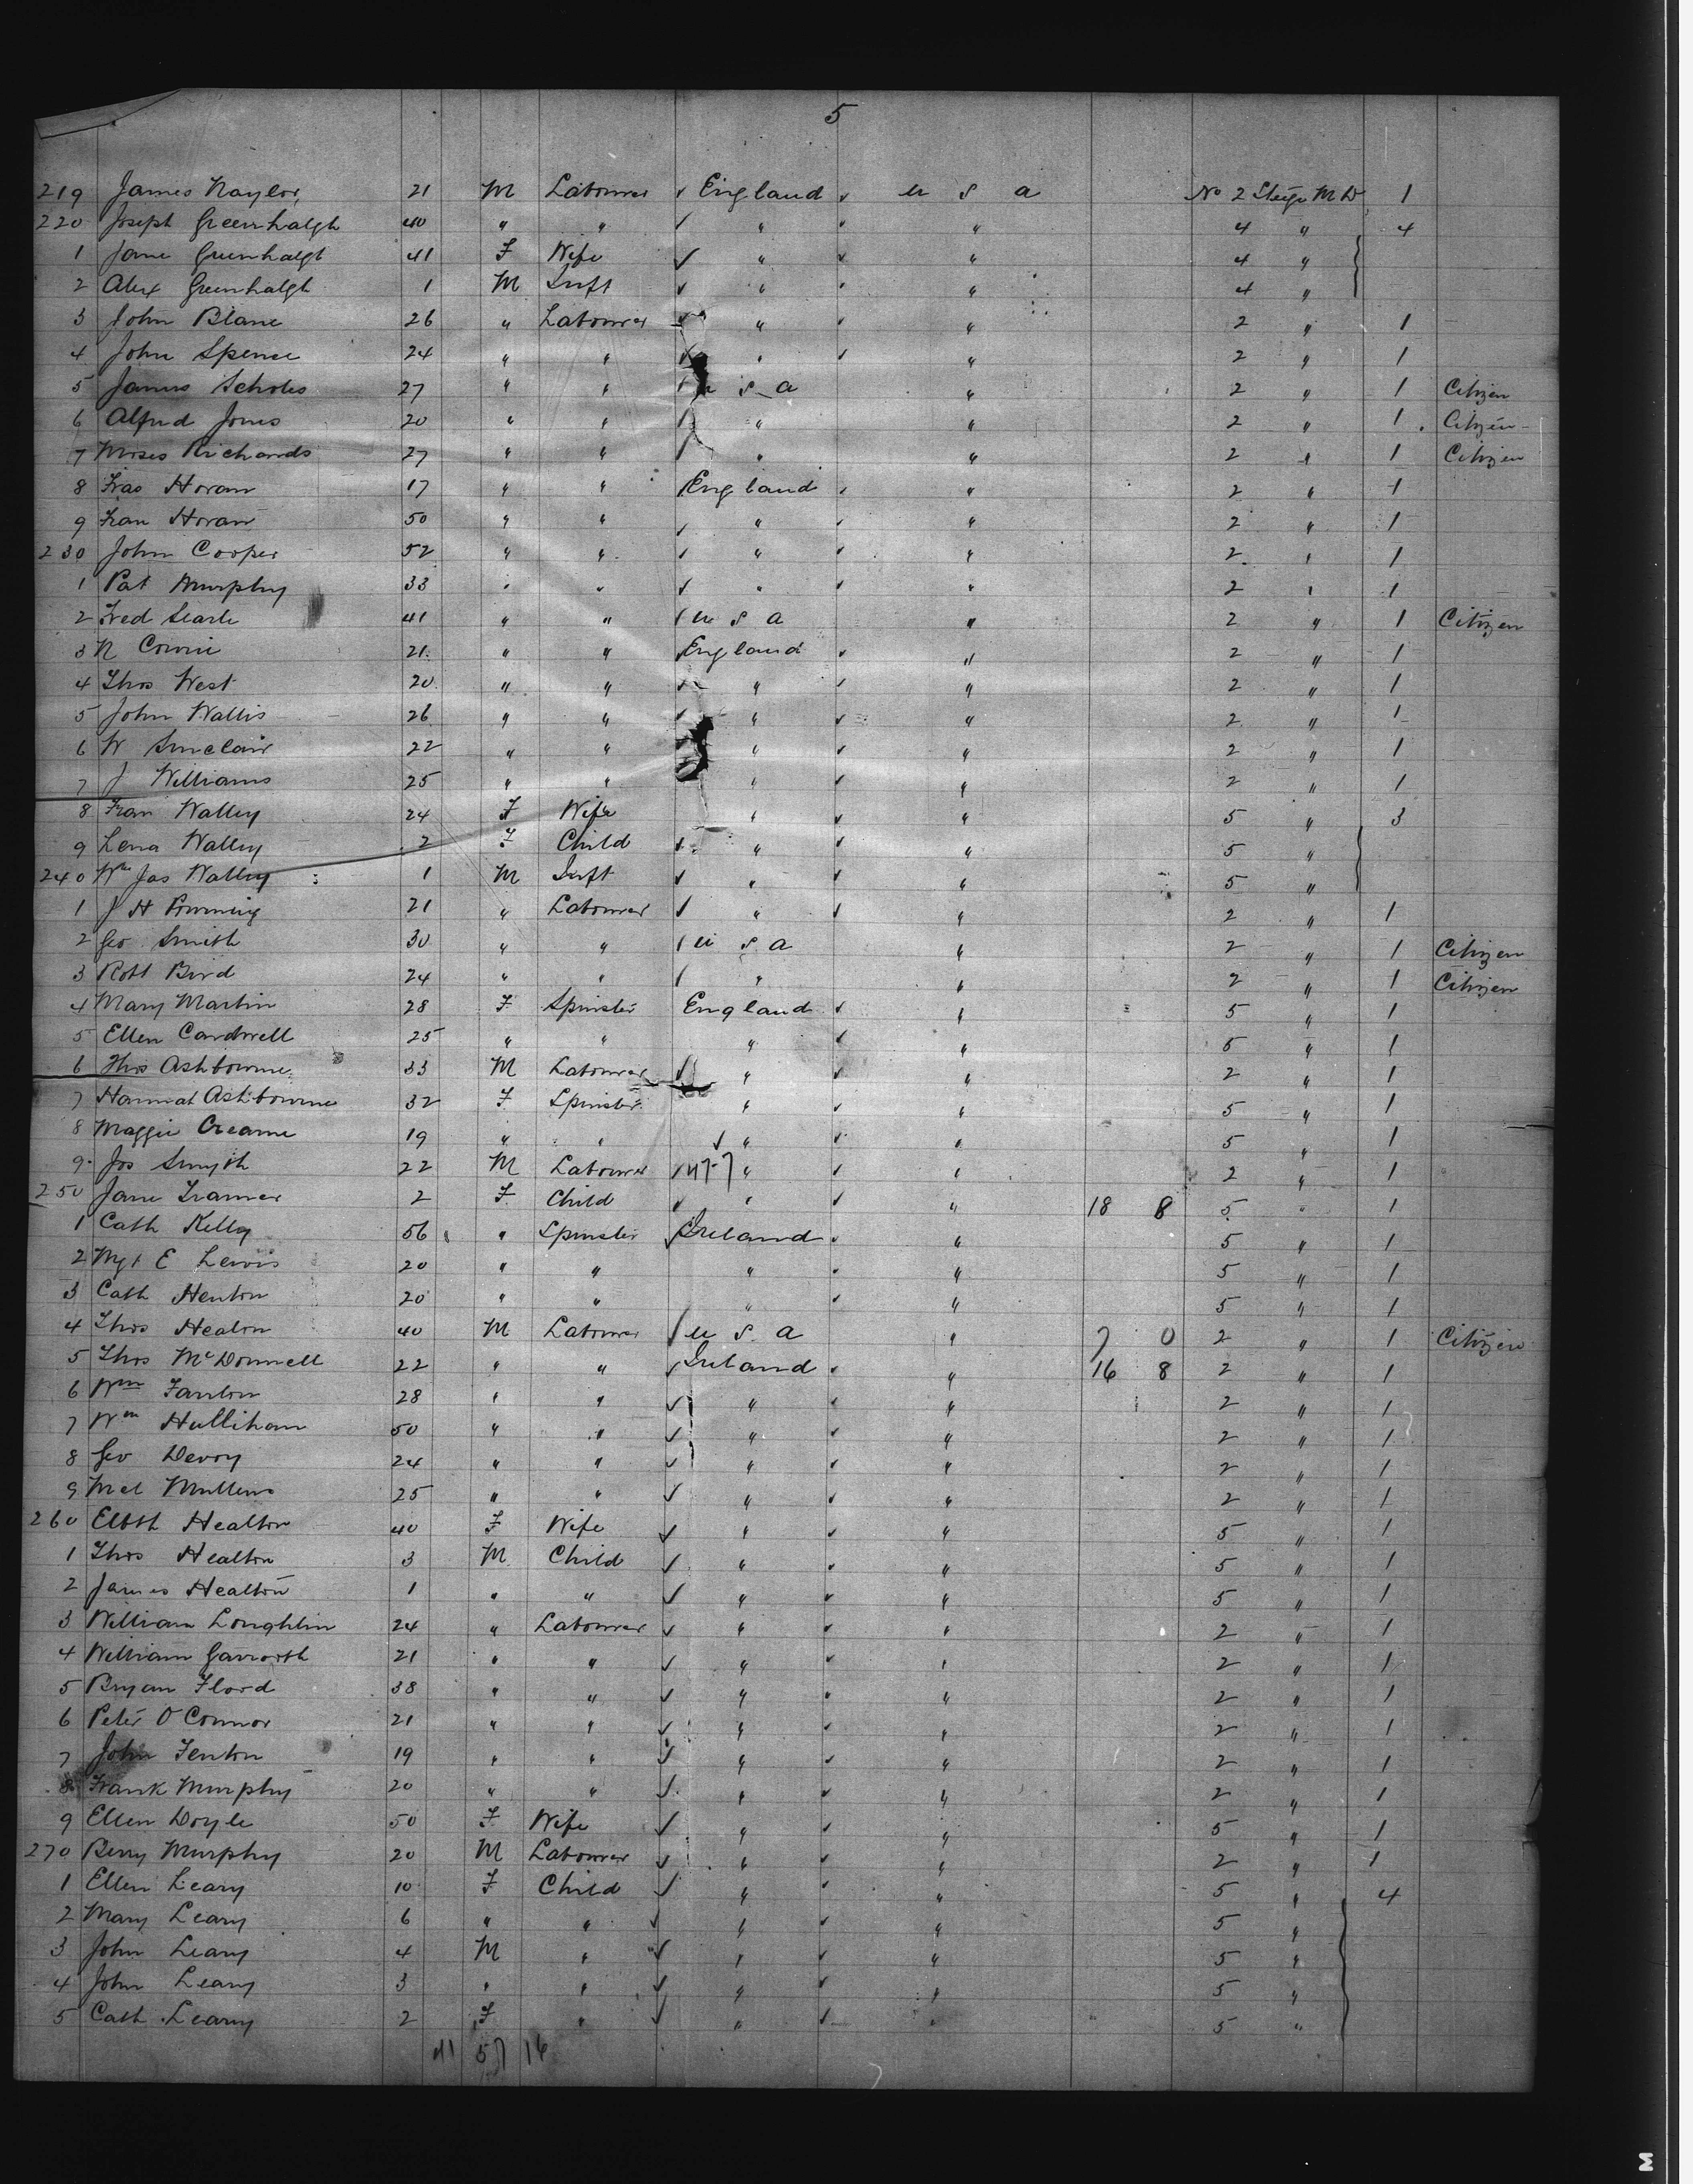 5
219 James Naylor 21 M Labourer England U S A No 2 Steege M D 1
220 Joseph Greenhalgh 40 " " " " 4 " 4
1 Jane Greenhalgh 41 F Wife " " 4 "
2 Alex Greenhalgh 1 M Inft " " 4 "
3 John Blane 26 " Labourer " " 2 " 1
4 John Spence 24 " " " " 2 " 1
5 James Scholes 27 " " U S A " 2 " 1 Citizen
6 Alfred Jones 20 " " " " 2 " 1 Citizen
7 Moses Richards 27 " " " " 2 " 1 Citizen
8 Fras Horan 17 " " England " 2 " 1
9 Fran Horan 50 " " " " 2 " 1
230 John Cooper 52 " " " " 2 " 1
1 Pat Murphy 33 " " " " 2 " 1
2 Fred Searle 41 " " U S A " 2 " 1 Citizen
3 N 21 " " England " 2 " 1
4 Thos West 20 " " " " 2 " 1
5 John Wallis 26 " " " " 2 " 1
6 W Sinclair 22 " " " " 2 " 1
7 J Williams 25 " " " " 2 " 1
8 Fran Walley 24 F Wife " " 5 " 3
9 Lena Walley 2 F Child " " 5 "
240 Wm Jas Walley 1 M Inft " " 5 "
1 J H 21 " Labourer " " 2 " 1
2 Geo Smith 30 " " U S A " 2 " 1 Citizen
3 Robt Bird 24 " " " " 2 " 1 Citizen
4 Mary Martin 28 F Spinster England " 5 " 1
5 Ellen Cardwell 25 " " " " 5 " 1
6 Thos Ashbourne 33 M Labourer " " 2 " 1
7 Hannah Ashbourne 32 F Spinster " " 5 " 1
8 Maggie Crearne 19 " " " " 5 " 1
9 Jos Smyth 22 M Labourer " " 2 " 1
250 Jane Tranner 2 F Child " " 18 8 5 " 1
1 Cath Kelly 56 " Spinster Ireland " 5 " 1
2 Mgt E Lewis 20 " " " " 5 " 1
3 Cath Henton 20 " " " " 5 " 1
4 Thos Healon 40 M Labourer U S A " 7 0 2 " 1 Citizen
5 Thos McDonnell 22 " " Ireland " 16 8 2 " 1
6 Wm Fanton 28 " " " " 2 " 1
7 Wm Hullihan 50 " " " " 2 " 1
8 Geo Devoy 24 " " " " 2 " 1
9 Mcl Mullens 25 " " " " 2 " 1
260 Elbth Healton 40 F Wife " " 5 " 1
1 Thos Healton 3 M Child " " 5 " 1
2 James Healton 1 " " " " 5 " 1
3 William Loughlin 24 " Labourer " " 2 " 1
4 William Garrorth 21 " " " " 2 " 1
5 Bryan Flood 38 " " " " 2 " 1
6 Peter O Connor 21 " " " " 2 " 1
7 John Fenton 19 " " " " 2 " 1
8 Frank Murphy 20 " " " " 2 " 1
9 Ellen Doyle 50 F Wife " " 5 " 1
270 Berry Murphy 20 M Labourer " " 2 " 1
1 Ellen Leary 10 F Child " " 5 " 4
2 Mary Leary 6 " " " " 5 "
3 John Leary 4 M " " " 5 "
4 John Leary 3 " " " " 5 "
5 Cath Leary 2 F " " " 5 "
41 57 16